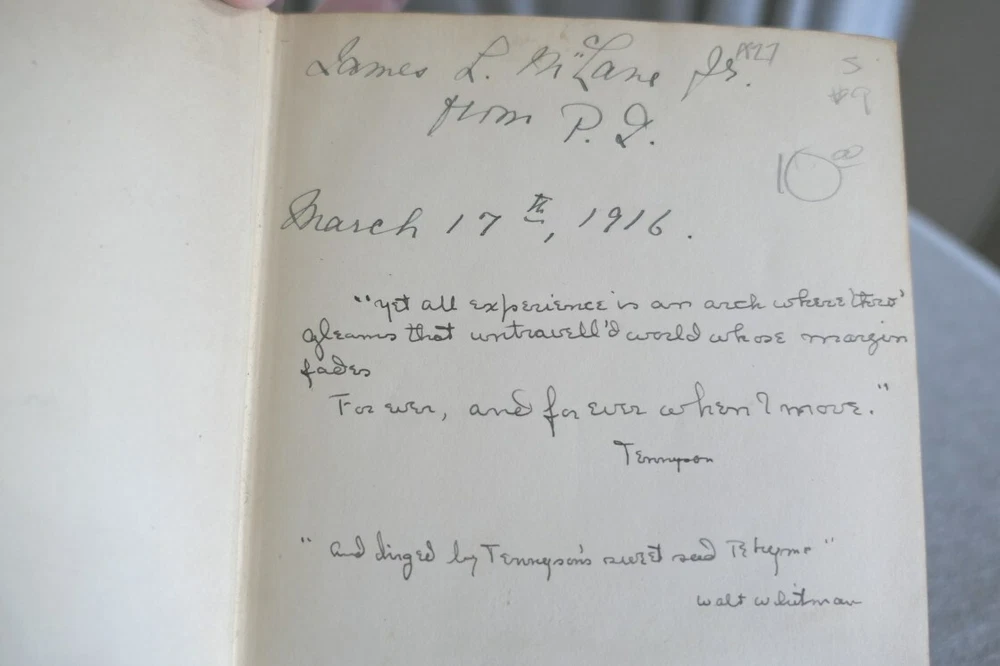 James L. McLane Jr.
from P. D.
S
#9
10 00
March 17th, 1916.
"yet all experience is an arch where thro'
gleams that untravell'd world whose margin
fades
For ever, and for ever when I move."
Tennyson
"and dirged by Tennyson's sweet sad Rhyme"
Walt Whitman